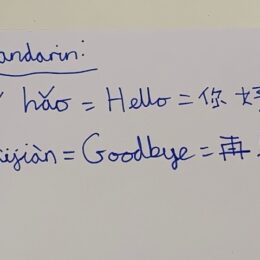 andarin:
hǎo = Hello = 你 好
ijiàn = Goodbye = 再